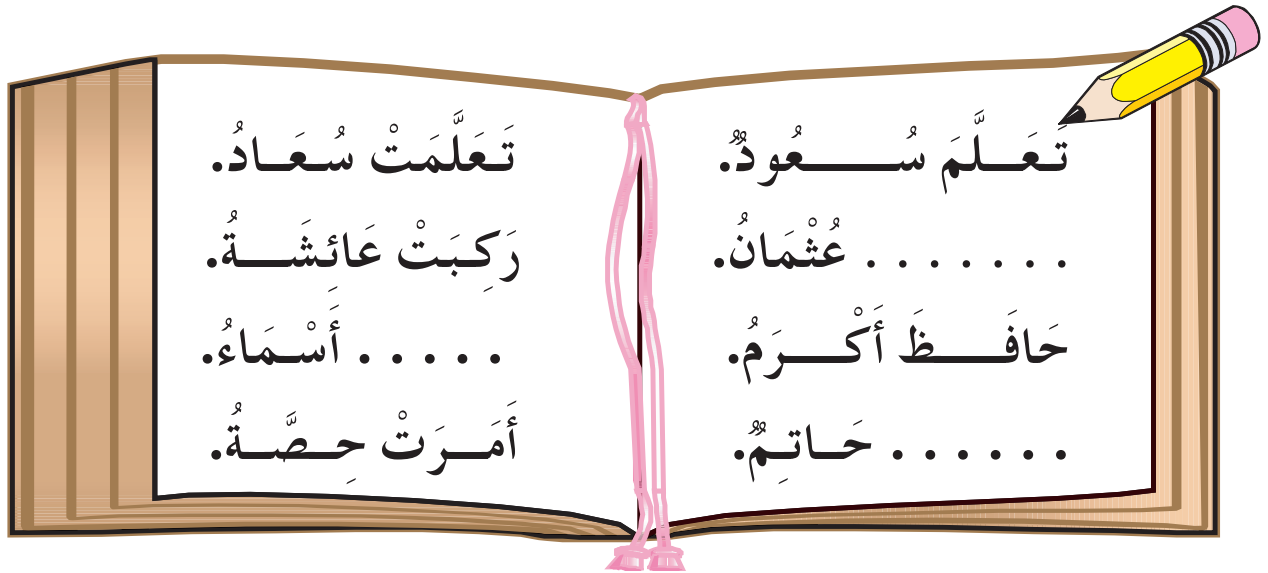 تَعَلَّمَ سُعُودٌ.
. . . . . . . عُثْمَانُ.
حَافَظَ أَكْرَمُ.
. . . . . . حَاتِمٌ.
تَعَلَّمَتْ سُعَادُ.
رَكِبَتْ عَائِشَةُ.
. . . . . أَسْمَاءُ.
أَمَرَتْ حِصَّةُ.